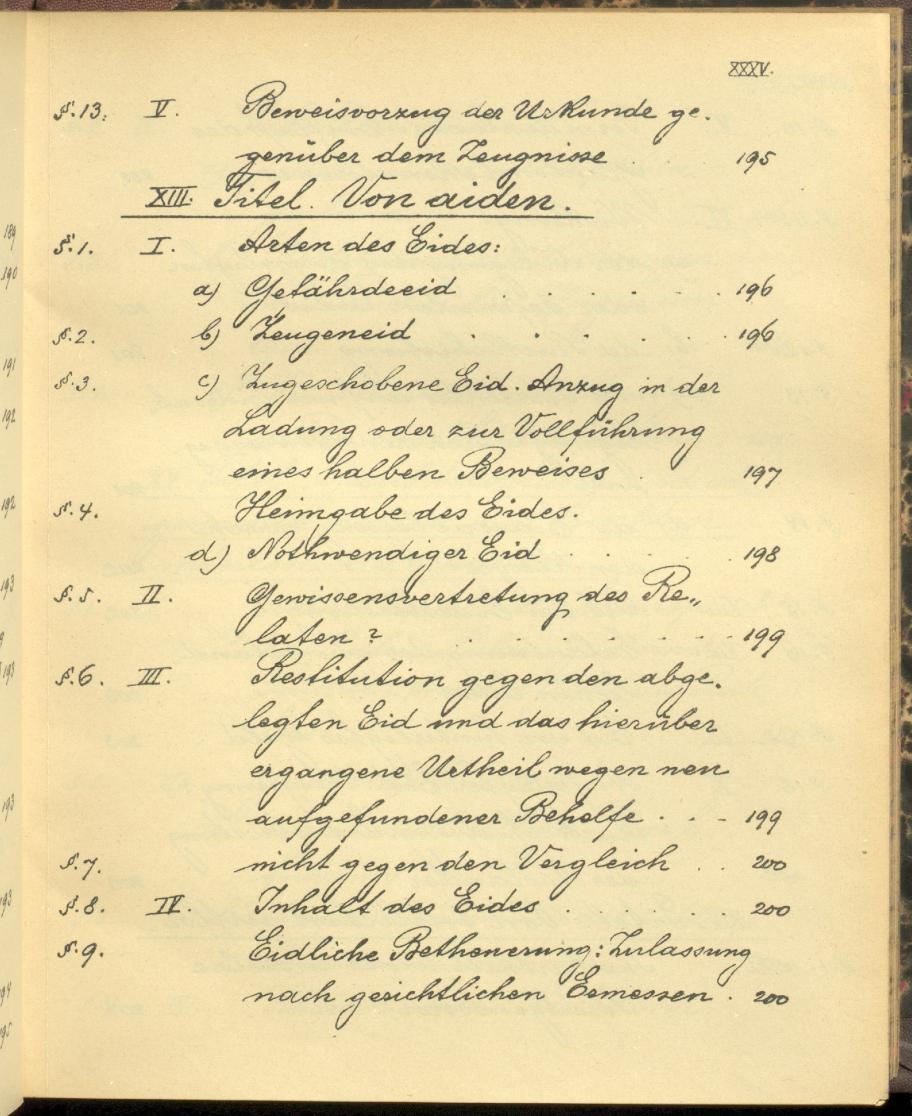 XXXV.
§.13. V. Beweisvorzug der Urkunde ge-
genüber dem Zeugnisse . . . 195
XIII. Titel. Von aiden.
§.1. I. Arten des Eides:
a) Gefährdeeid . . . . . . 196
§.2. b) Zeugeneid . . . . . 196
§.3. c) Zugeschobene Eid. Anzug in der
Ladung oder zur Vollführung
eines halben Beweises . 197
§.4. Heimgabe des Eides.
d) Nothwendiger Eid . . . . 198
§.5. II. Gewissensvertretung des Re„
laten? . . . . . . . 199
§.6. III. Restitution gegen den abge-
legten Eid und das hierüber
ergangene Urtheil wegen neu
aufgefundener Behelfe . . - 199
§.7. nicht gegen den Vergleich . . 200
§.8. IV. Inhalt des Eides . . . . . 200
§.9. Eidliche Betheuerung: Zulassung
nach gerichtlichen Ermessen . 200
189
190
191
192
192
193
193
193
193
194
195